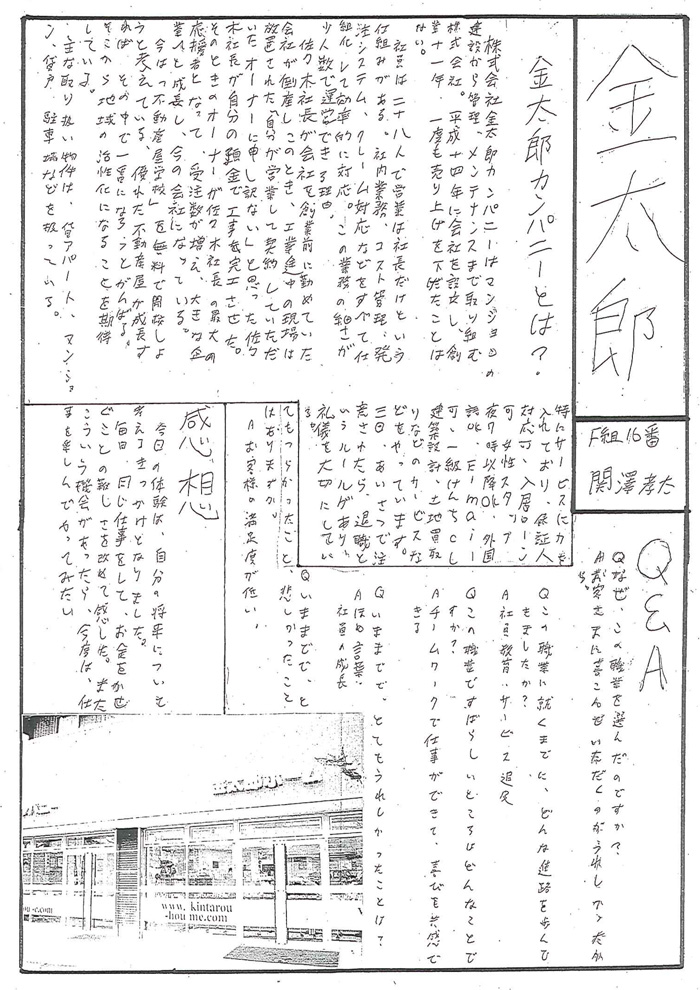 金太郎
F組16番
関澤孝太
金太郎カンパニーとは？
株式会社金太郎カンパニーはマンションの
建設から管理、メンテナンスまで取り組む
株式会社。平成十四年に会社を設立し、創
業十一年、一度も売り上げを下げたことは
ない。
社員は二十八人で営業は社長だけという
仕組みがある。社内業務、コスト管理、発
注システム、クレーム対応などをすべて仕
組化して効率的に対応。この業務の細さが
少人数で運営できる理由。
佐々木社長が会社を創業前に勤めていた
会社が倒産しこのとき、工業進中の現場は
放置された。「自分が営業して契約していただ
いたオーナーに申し訳ない」と思った佐々
木社長が自分の預金で工事を完工させた。
そのときのオーナーが佐々木社長の最大の
応援者となって、受注数が増え、大きな企
業へと成長し、今の会社になっている。
今は「不動産屋学校」を無料で開校しよ
うと考えている。優れた不動産屋が成長す
れば、その中で一番になろうとがんばる。
そこから地域の活性化になることを期待
している。
主な取り扱い物件は、貸アパート、マンショ
ン、貸戸、駐車場などを扱っている。
特にサービスに力を
入れており、保証人
対応可、入居ローン
可、女性スタッフ
夜7時以降OK、外国
語OK、Email
可、一級けんちくし
建築設計、土地買取
りなどのサービスな
どをやっています。
三回、あいさつで注
意されたら、退職と
いうルールがあり、
礼儀を大切にしてい
る。
Q&A
Qなぜ、この職業を選んだのですか？
Aお客さまに喜こんでいただくのがうれしかったか
ら。
Qこの職業に就くまでに、どんな進路を歩んで
きましたか？
A社員教育・サービス追及
Qこの職業ですばらしいところはどんなことで
すか？
Aチームワークで仕事ができて、喜びを共感で
きる
Qいままでで、とてもうれしかったことは？
Aほめ言葉・
社員の成長
Qいままでで、と
てもつらかったこと、悲しかったこと
はありますか。
Aお客様の満足度が低い、
感想
今日の体験は、自分の将来について
考えるきっかけとなりました。
毎日、同じ仕事をして、お金をかせ
ぐことの難しさを改めて感じた。また
こういう機会があったら、今度は、仕
事を楽しんでやってみたい
www.kintarou
-houme.com